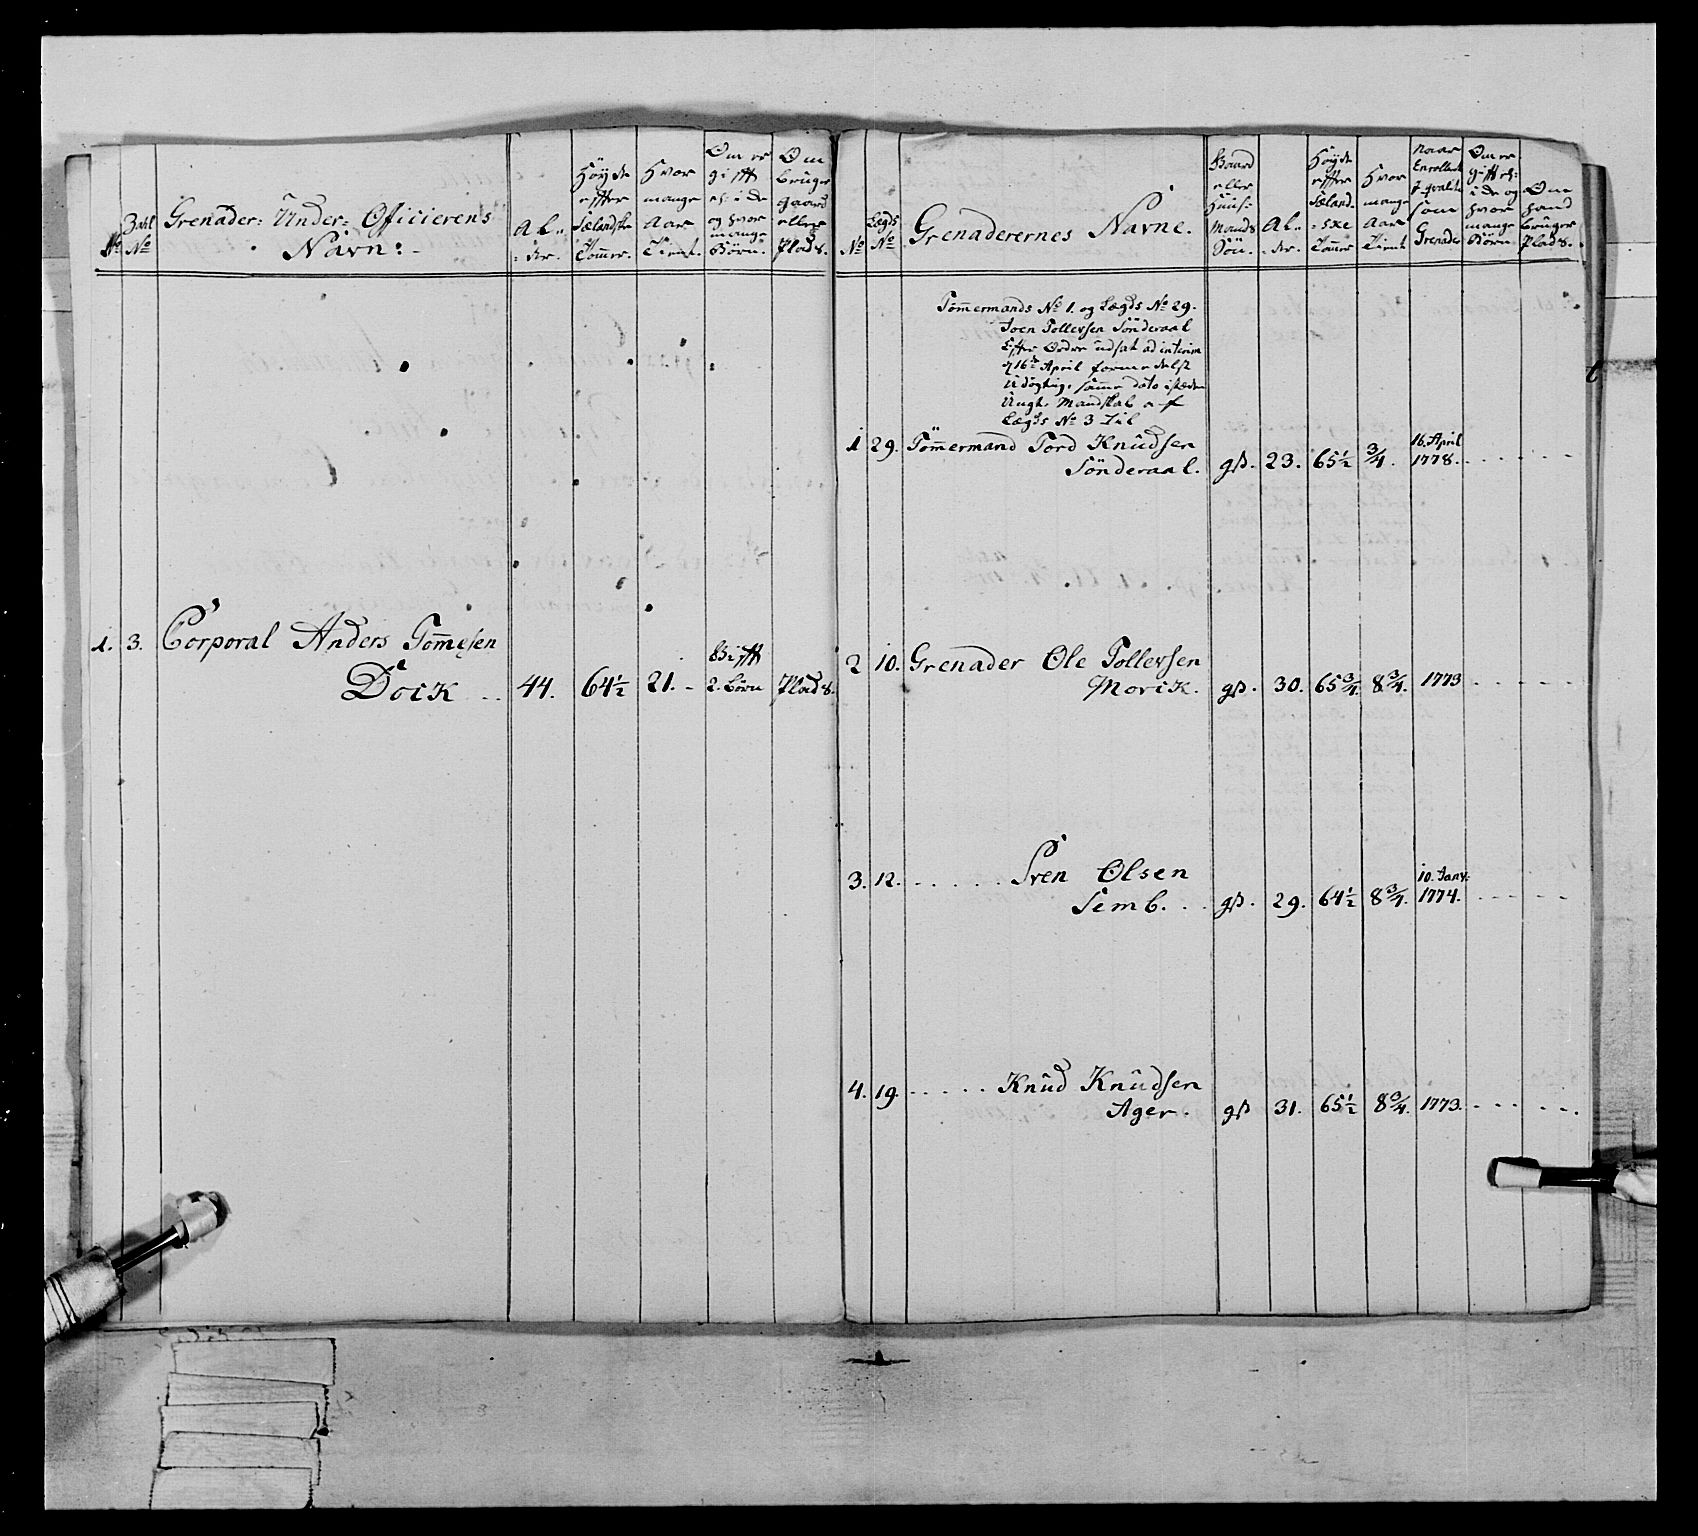 No
Zahl No
Grenader: Under: Officierens
Navn:
Al-
der.
Höyde
effter
Sælandske
Tommer.
Hvor
mange
Aar
Tient.
Om er
gifft
og hvor
mange
Börn.
Om
bruger
gaard
eller
Plads.
1. 3. Corporal Anders Tom̄esen
Dock 44. 64½ 21. Gifft 2. Börn Plads.
No
Lægds No
Grenaderernes Navne.
Gaard
eller
Huus-
Mands
Sön.
Al-
der.
Höyde
effter
Sæland-
ske
Tommer
Hvor
mange
Aar
Tient
Naar
Enrollert
i qvalite
som
Grenader
Om er
gifft
og
hvor
mange
Börn.
Om
hand
bruger
Plads.
Töm̄ermands No 1. og Lægds No 29.
Joen Tollefsen Sönderaal
Effter Ordre udsat ad interim
d 16de April formedelst
Udögtig, sam̄e dato isteden
Ungt Mandskab af
Lægds No 3 Til
1 29. Töm̄ermand Tord Knudsen
Sönderaal. gß. 23. 65½ ¾. 16. April 1778.
2 10. Grenader Ole Tollefsen
Morick. gß. 30. 65¾ 8¾. 1773
3. 12. Sven Olsen
Semb. gß. 29. 64½ 8¾. 10. Janv: 1774.
4. 19. Knud Knudsen
Ager. gß 31. 65½ 8¾. 1773.